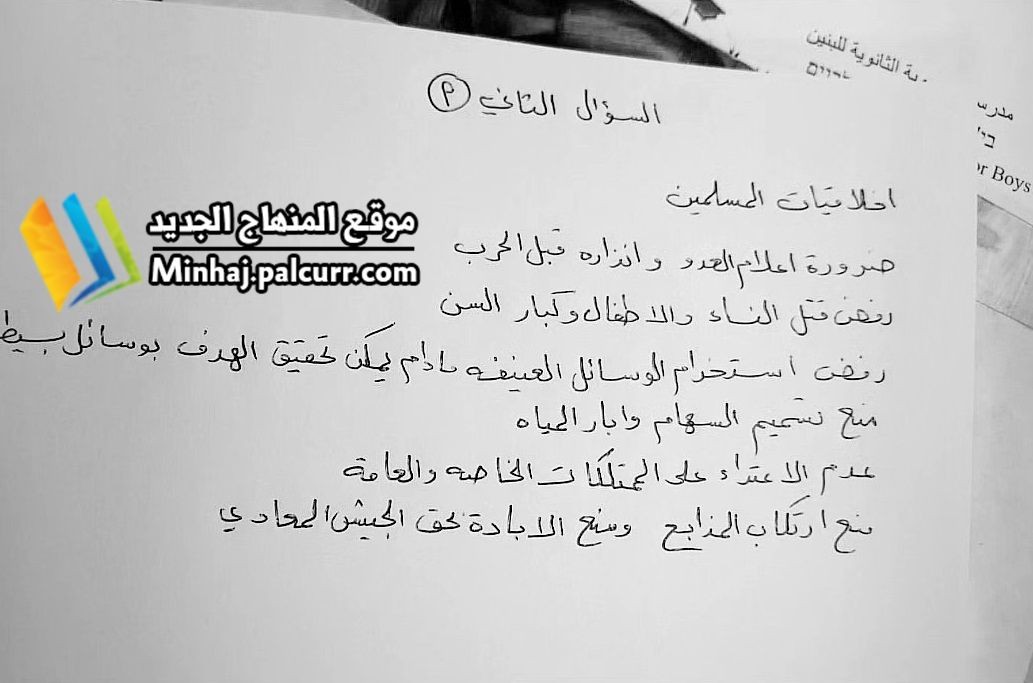 ية الثانوية للبنين
מדר
בי"
or Boys
السؤال الثاني (م)
اخلاقيات المسلمين
موقع المنهاج الجديد
Minhaj.palcurr.com
ضرورة اعلام العدو وانذاره قبل الحرب
رفض قتل النساء والاطفال وكبار السن
رفض استخدام الوسائل العنيفه مادام يمكن تحقيق الهدف بوسائل بسيط
منع تسميم السهام وابار المياه
عدم الاعتداء على الممتلكات الخاصه والعامة
منع ارتكاب المذابح ومنع الابادة بحق الجيش المعادي